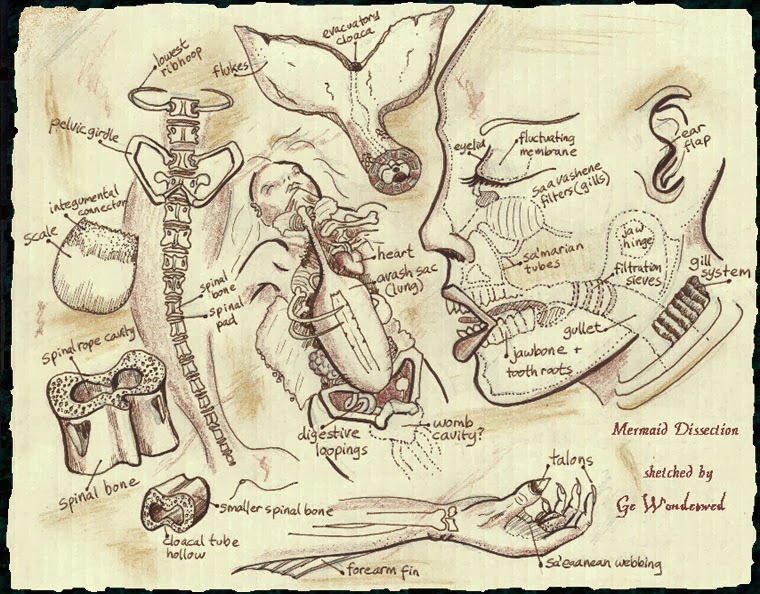 lowest
ribhoop
pelvic girdle
integumental
connector
scale
spinal
bone
spinal
pad
spinal rope cavity
spinal bone
smaller spinal bone
cloacal tube
hollow
evacuatory
cloaca
flukes
heart
avash sac
(lung)
digestive
loopings
womb
cavity?
eyelid
fluctuating
membrane
saavashene
filters (gills)
sa'marian
tubes
jaw
hinge
filtration
sieves
gill
system
gullet
jawbone +
tooth roots
ear
flap
talons
forearm fin
webbing
Mermaid Dissection
sketched by
Ge Wonderwed